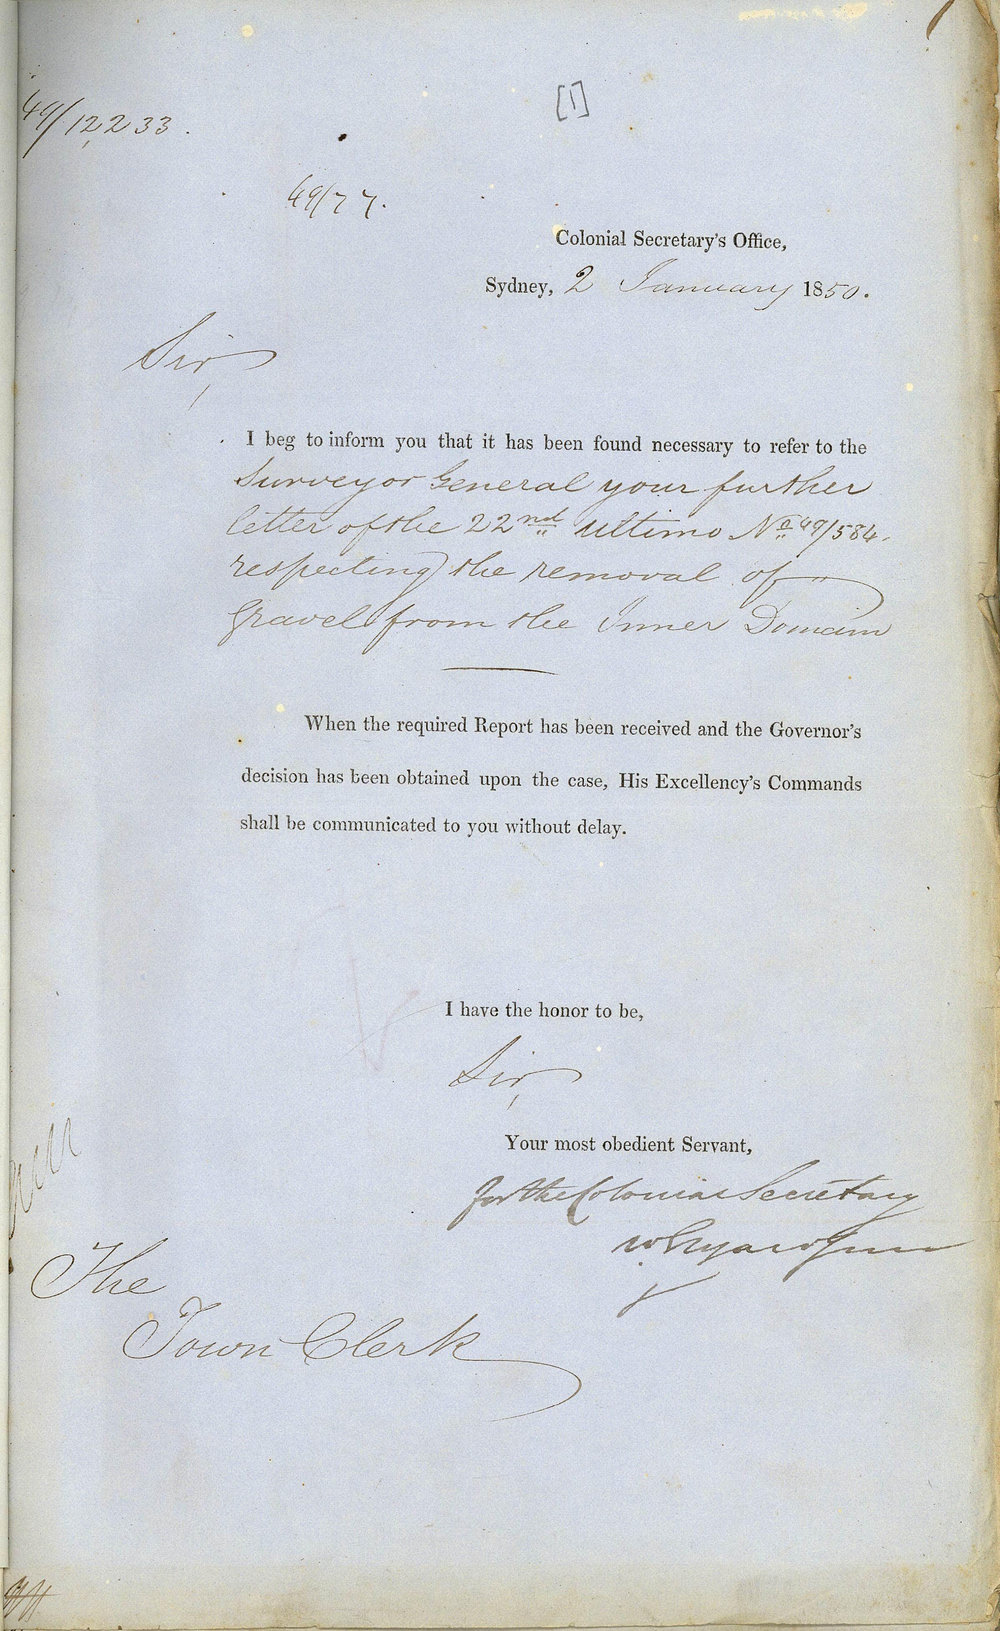 [1]
49/12233.
49/77.
Colonial Secretary's Office,
Sydney, 2 January 1850.
Sir,
I beg to inform you that it has been found necessary to refer to the
Surveyor General your further
letter of the 22nd ultimo No 49/584.
respecting the removal of
Gravel from the Inner Domain
When the required Report has been received and the Governor's
decision has been obtained upon the case, His Excellency's Commands
shall be communicated to you without delay.
I have the honor to be,
Sir,
Your most obedient Servant,
for the Colonial Secretary
The
Town Clerk